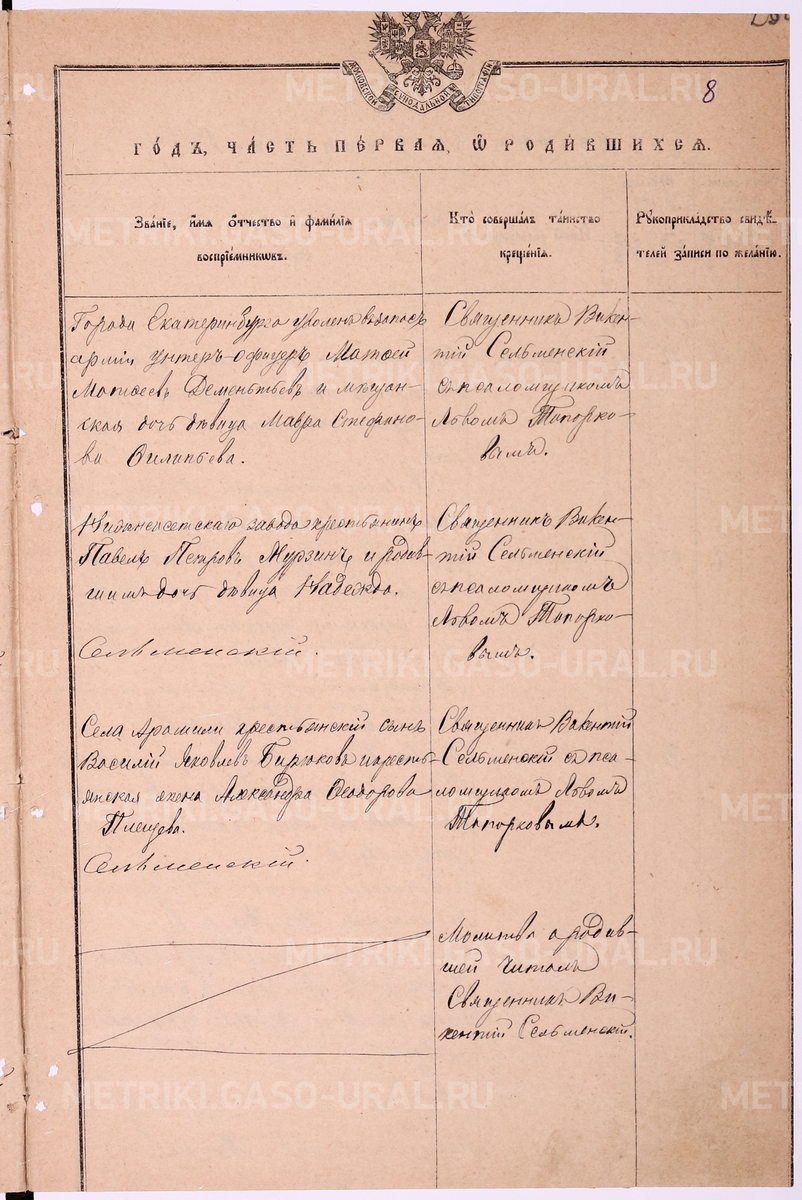 МОСКОВСКОЙ СѴНОДАЛЬНОЙ ТИПОГРАФІИ
8
ГО́ДЪ, ЧА́СТЬ ПЕ́РВАЯ, Ѽ РОДИ́ВШИХСЯ.
Зва́нїе, и҆́мя ѻ҆́тчество и҆ фами́лїя
воспрїе́мникѡвъ.
Кто̀ соверша́лъ та́инство
креще́нїя.
Рꙋкоприкла́дство свидѣ́-
телей за́писи по жела́нїю.
Города Екатеринбурга уволен. въ запасъ
арміи унтеръ-офицеръ Матѳей
Матѳеевъ Дементьевъ и мѣщан-
ская дочь дѣвица Мавра Стефано-
ва Филипьева.
Священникъ Викен-
тій Сельменскій
съ псаломщикомъ
Львомъ Топорко-
вымъ.
Нижнеисетскаго завода крестьянинъ
Павелъ Петровъ Мурзинъ и родив-
шимъ дочь дѣвица Надежда.
Сельменскій.
Священникъ Викен-
тій Сельменскій
съ псаломщикомъ
Львомъ Топорко-
вымъ.
Села Арамили крестьянскій сынъ
Василій Яковлевъ Бирюковъ и кресть-
янская жена Александра Ѳеодорова
Плещева.
Сельменскій.
Священникъ Викентій
Сельменскій съ пса-
ломщикомъ Львомъ
Топорковымъ.
Молитва о родив-
шей читалъ
Священникъ Ви-
кентій Сельменскій.
METRIKI.GASO-URAL.RU